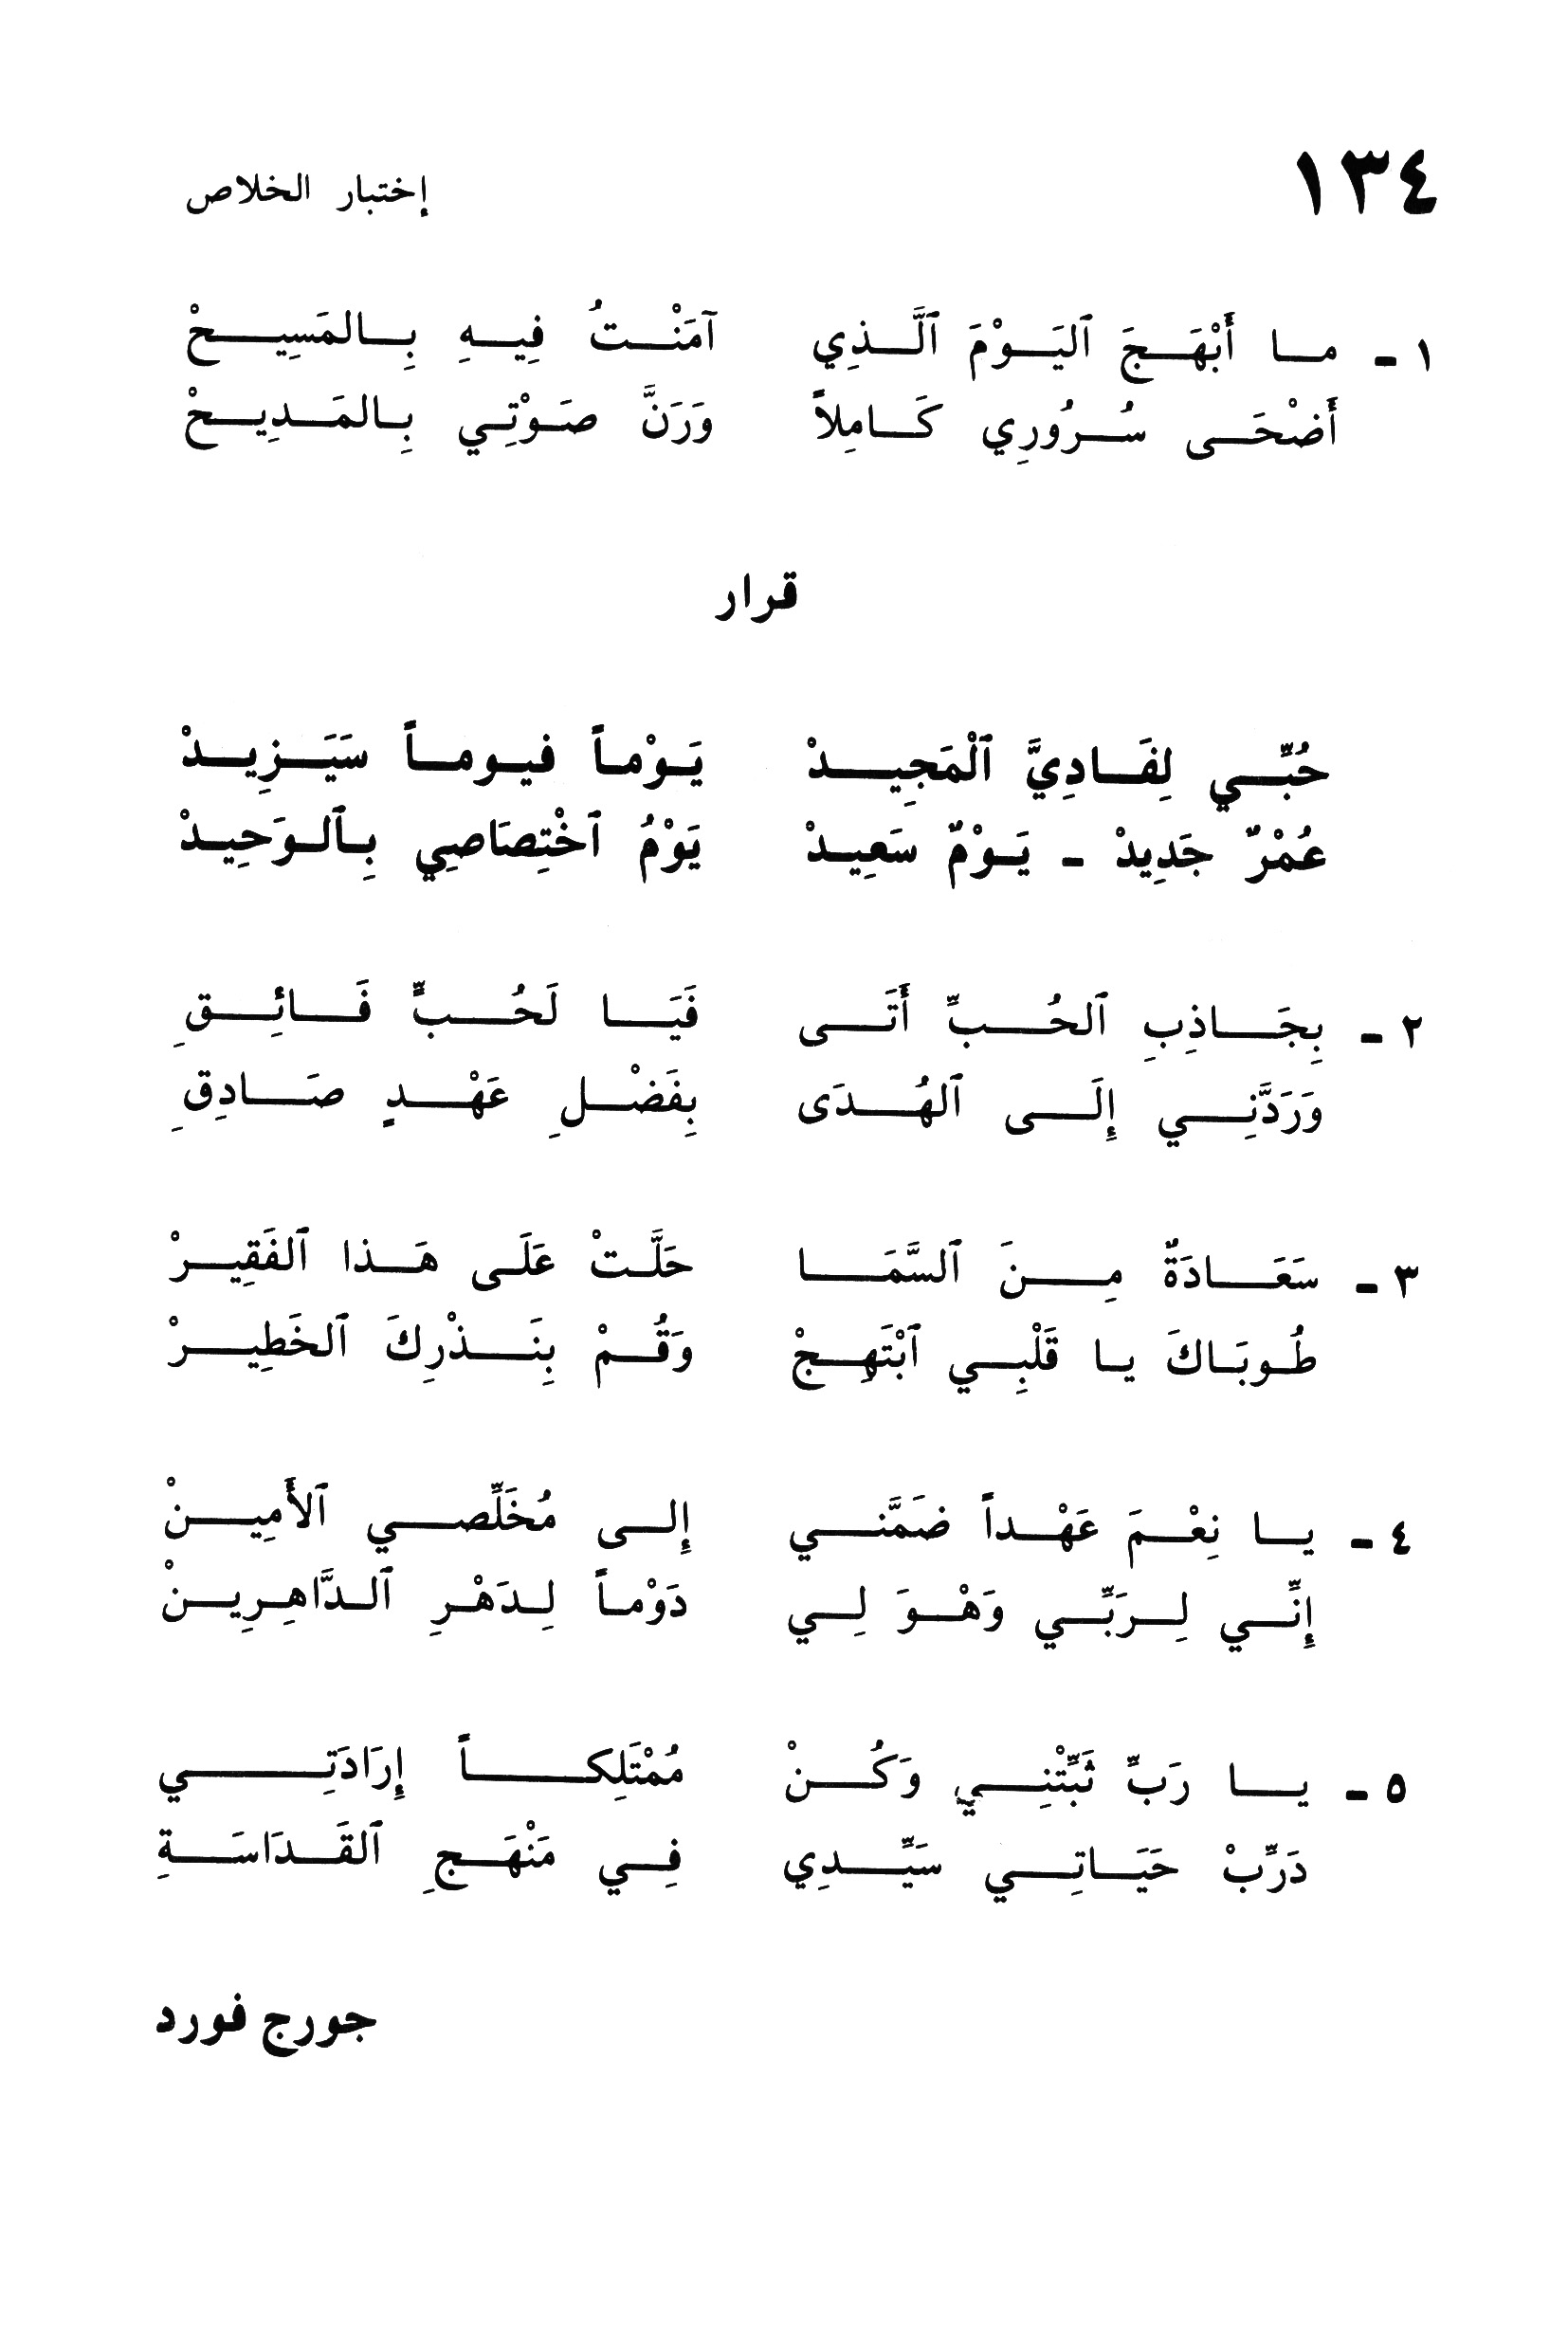 ١٣٤ إختبار الخلاص
١ - ما أَبْهَجَ ٱليَوْمَ ٱلَّذِي آمَنْتُ فِيهِ بِالمَسِيحْ
أَضْحَى سُرُورِي كَامِلاً وَرَنَّ صَوْتِي بِالمَدِيحْ
قرار
حُبِّي لِفَادِيَّ ٱلْمَجِيدْ يَوْماً فيوماً سَيَزِيدْ
عُمْرٌ جَدِيدْ - يَوْمٌ سَعِيدْ يَوْمُ ٱخْتِصَاصِي بِٱلوَحِيدْ
٢ - بِجَاذِبِ ٱلحُبِّ أَتَى فَيَا لَحُبٍّ فَائِقِ
وَرَدَّنِي إِلَى ٱلهُدَى بِفَضْلِ عَهْدٍ صَادِقِ
٣ - سَعَادَةٌ مِنَ ٱلسَّمَا حَلَّتْ عَلَى هَذا ٱلفَقِيرْ
طُوبَاكَ يا قَلْبِي ٱبْتَهِجْ وَقُمْ بِنَذْرِكَ ٱلخَطِيرْ
٤ - يا نِعْمَ عَهْداً ضَمَّني إِلى مُخَلِّصي ٱلأَمِينْ
إِنِّي لِرَبِّي وَهْوَ لِي دَوْماً لِدَهْرِ ٱلدَّاهِرِينْ
٥ - يا رَبِّ ثَبِّتْنِي وَكُنْ مُمْتَلِكاً إِرَادَتِي
دَرِّبْ حَيَاتِي سَيِّدِي فِي مَنْهَجِ ٱلقَدَاسَةِ
جورج فورد